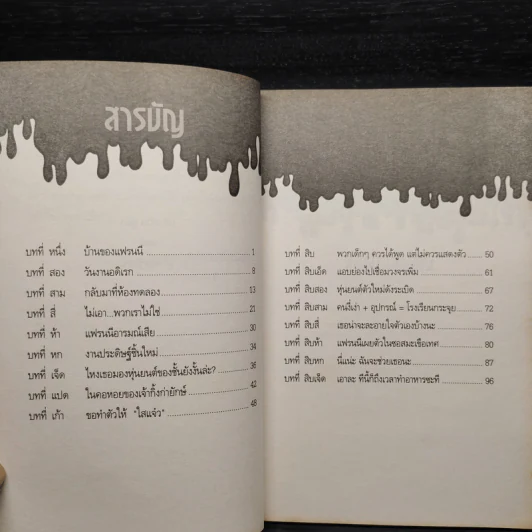 สารบัญ
บทที่ หนึ่ง บ้านของแฟรนนี 1
บทที่ สอง วันงานอดิเรก 8
บทที่ สาม กลับมาที่ห้องทดลอง 13
บทที่ สี่ ไม่เอา...พวกเราไม่ใช่ 21
บทที่ ห้า แฟรนนีอารมณ์เสีย 30
บทที่ หก งานประดิษฐ์ชิ้นใหม่ 34
บทที่ เจ็ด ไหงเธอมองหุ่นยนต์ของชั้นยังงั้นล่ะ? 36
บทที่ แปด ในคอหอยของเจ้ากิ้งก่ายักษ์ 42
บทที่ เก้า ขอทำตัวให้ "ใสแจ๋ว" 48
บทที่ สิบ พวกเด็กๆ ควรได้พูด แต่ไม่ควรแสดงตัว 50
บทที่ สิบเอ็ด แอบย่องไปเชื่อมวงจรเพิ่ม 61
บทที่ สิบสอง หุ่นยนต์ตัวใหม่ดังระเบิด 67
บทที่ สิบสาม คนงี่เง่า + อุปกรณ์ = โรงเรียนกระจุย 72
บทที่ สิบสี่ เธอน่าจะละอายใจตัวเองบ้างนะ 76
บทที่ สิบห้า แฟรนนีเผยตัวในซอสมะเขือเทศ 80
บทที่ สิบหก นี่แน่ะ ฉันจะช่วยเธอนะ 87
บทที่ สิบเจ็ด เอาละ ทีนี้ก็ถึงเวลาทำอาหารซะที 96